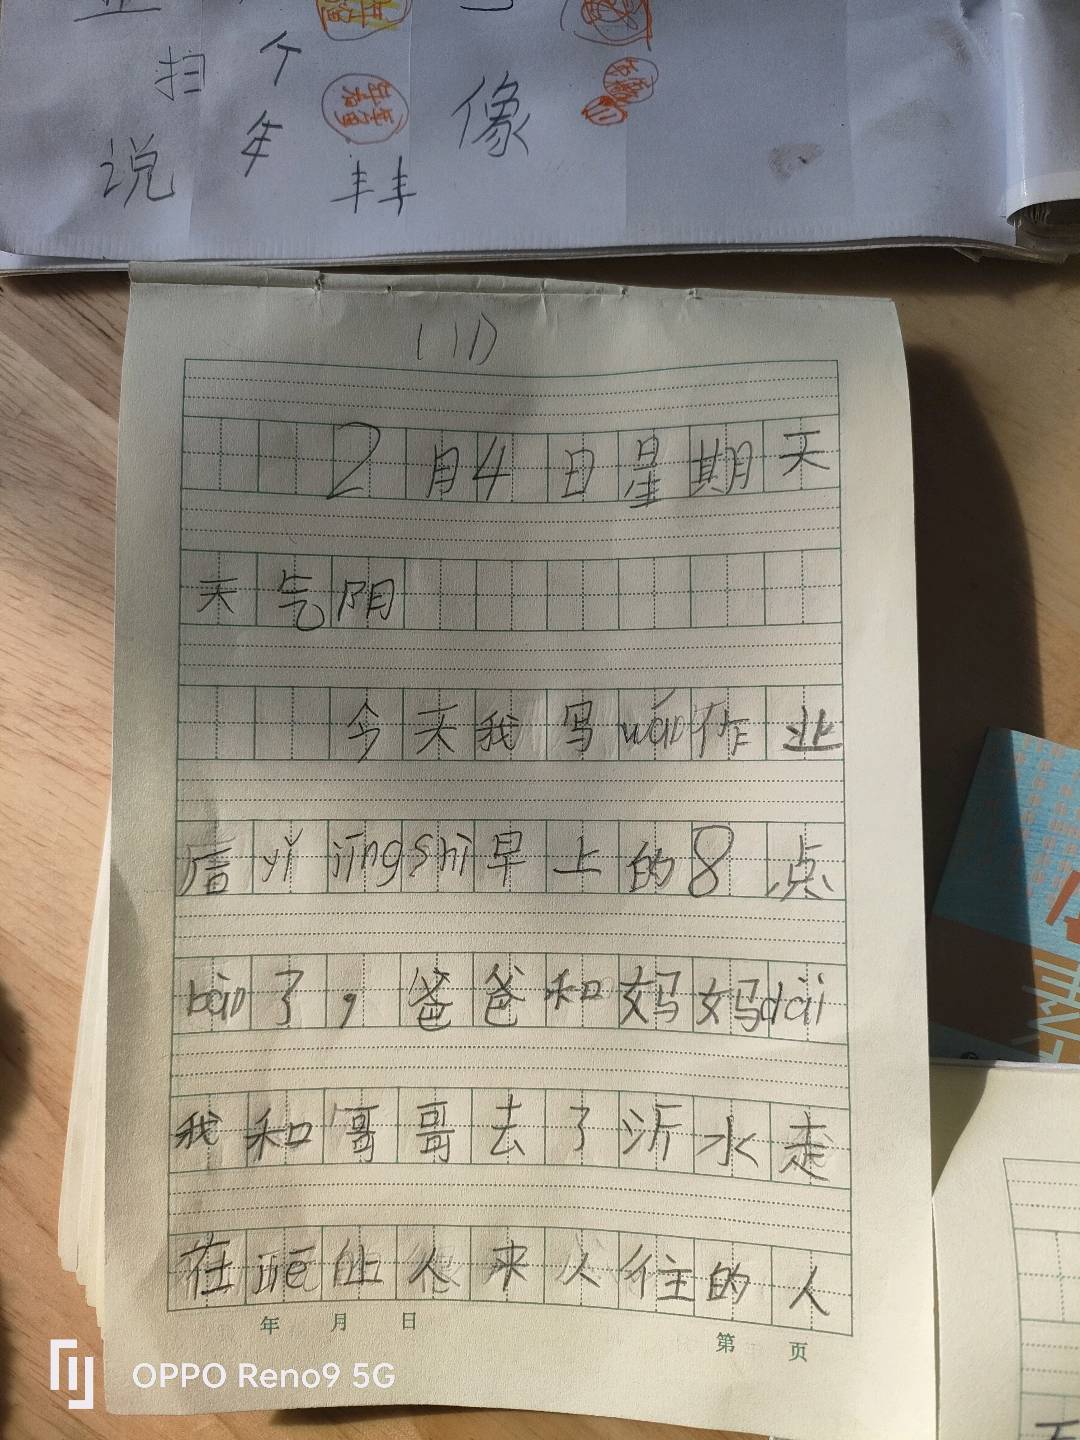 扫 个
说 年 丰丰 像
(11)
2月4日星期天
天气阴
今天我写wán作业
后yǐ jīng shì早上的8点
bàn了，爸爸和妈妈dài
我和哥哥去了沂水走
在jiē上人来人往的人
年 月 日
第 页
OPPO Reno9 5G